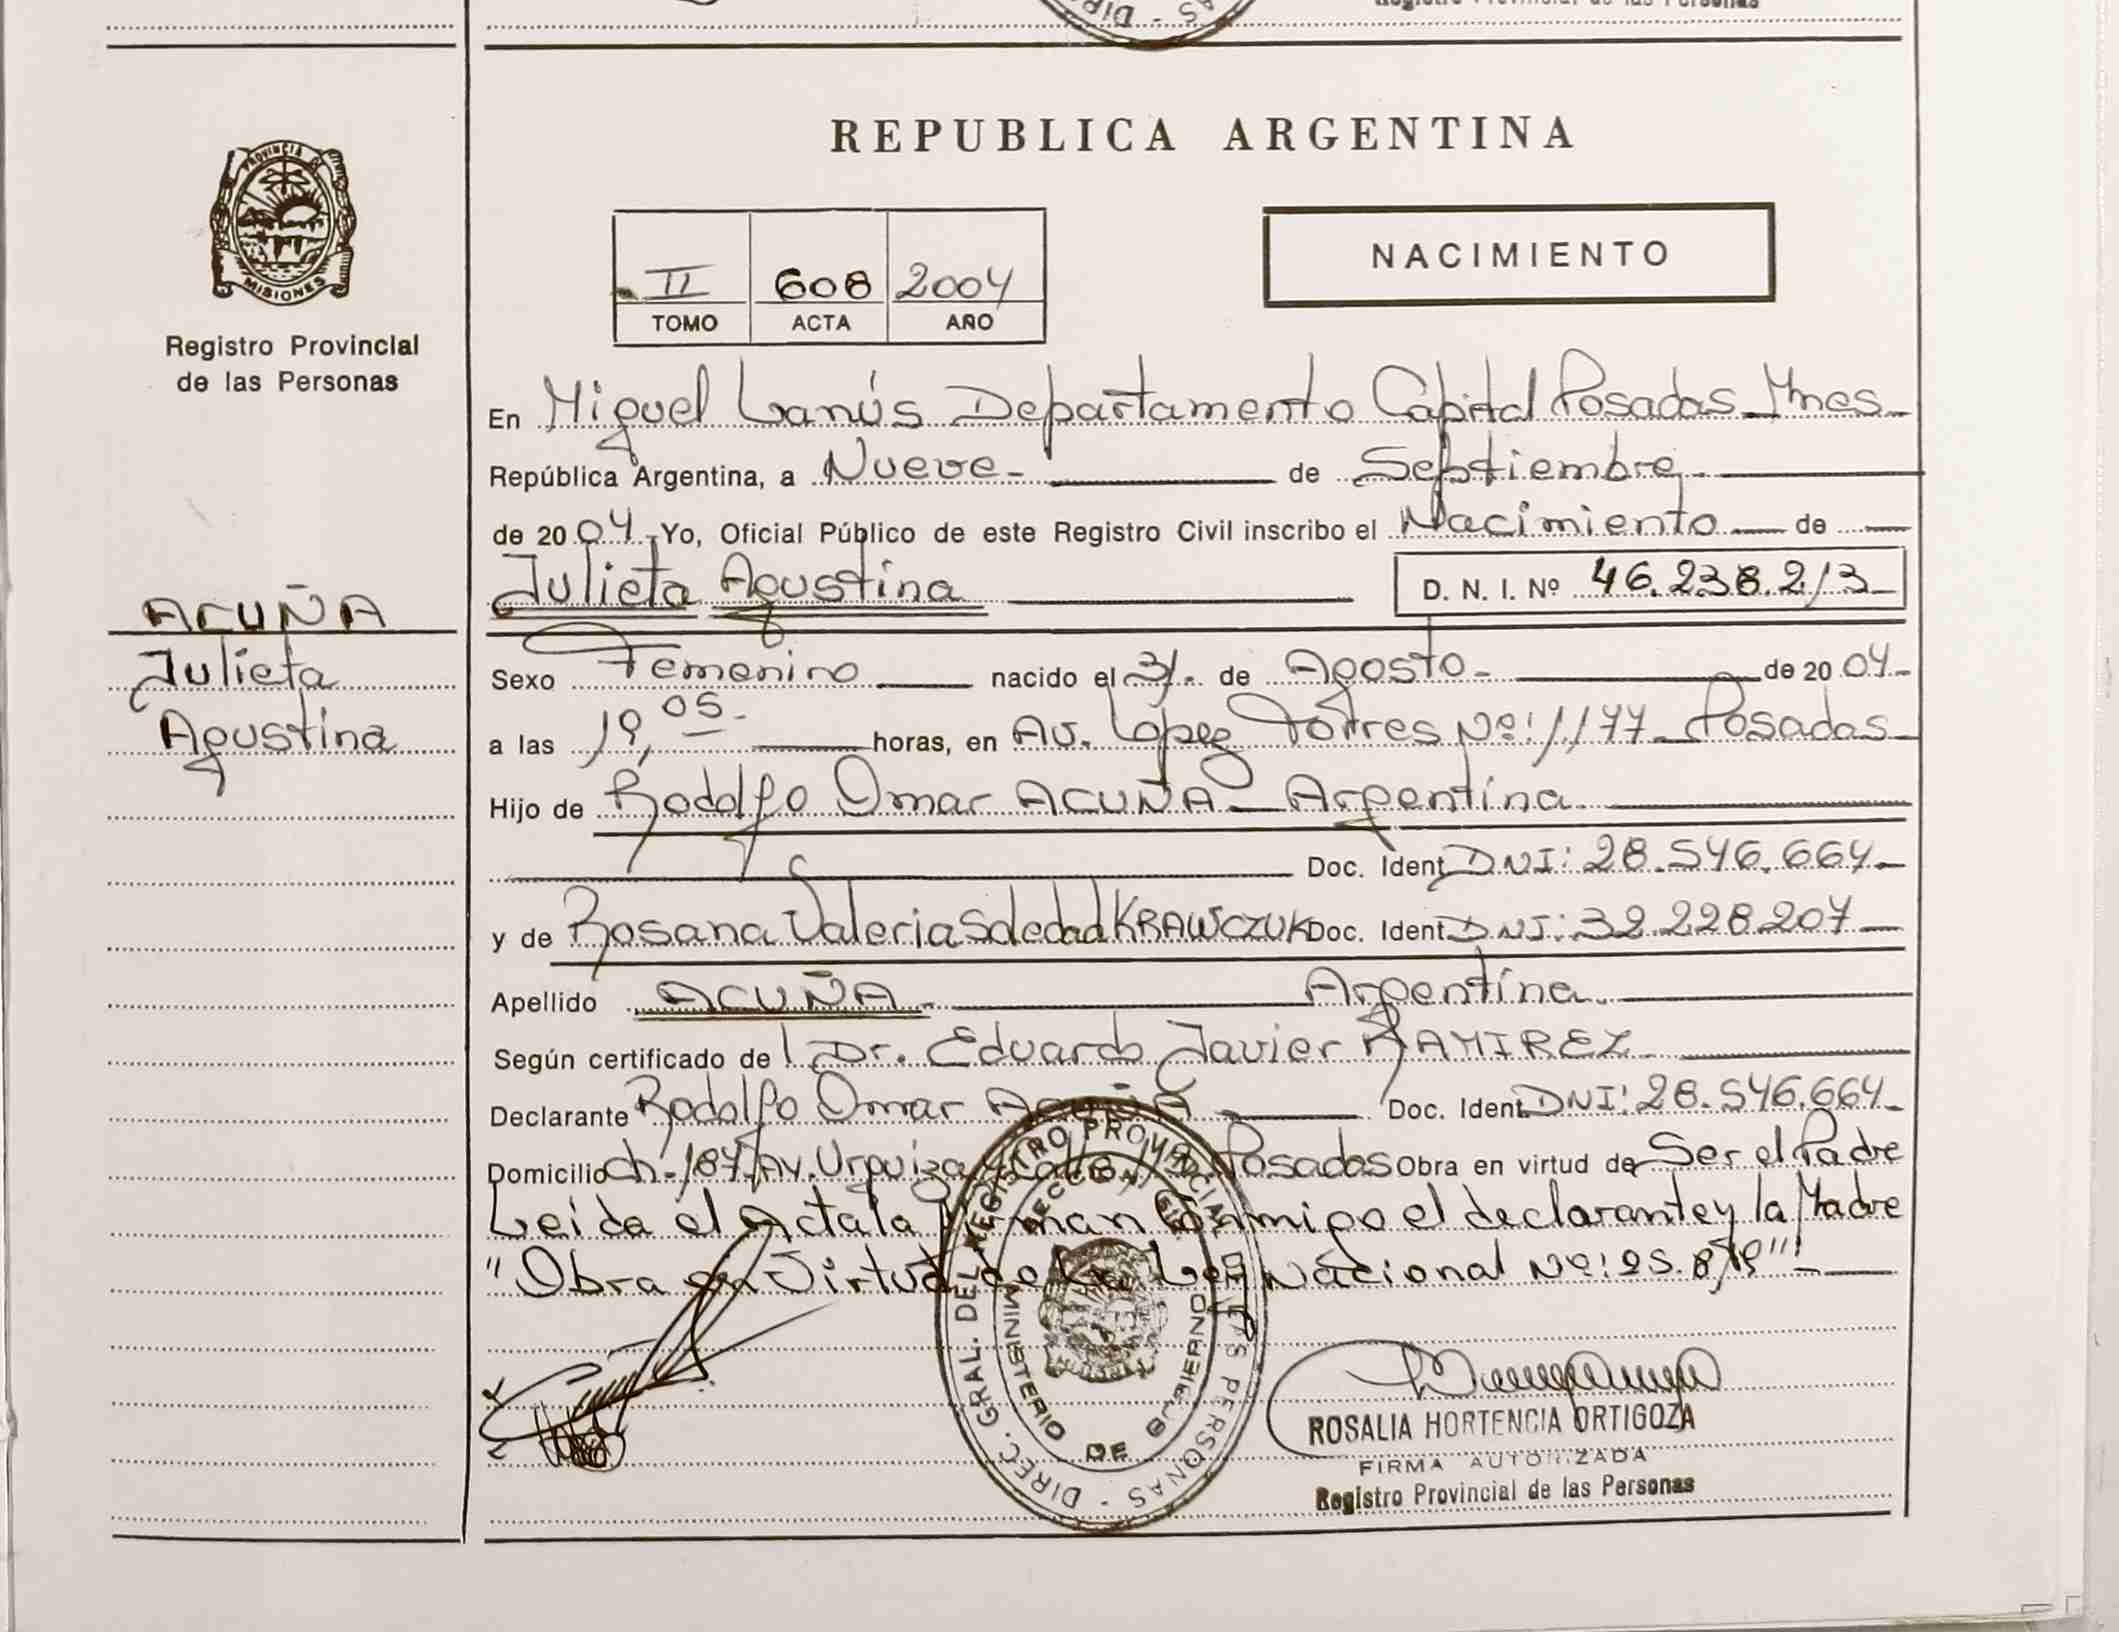 Registro Provincial de las Personas
DIREC
REPUBLICA ARGENTINA
PROVINCIA DE
MISIONES
Registro Provincial
de las Personas
II 608 2004
TOMO ACTA AÑO
NACIMIENTO
En Miguel Lanús Departamento Capital Posadas Mnes
República Argentina, a Nueve de Septiembre
de 2004 Yo, Oficial Público de este Registro Civil inscribo el Nacimiento de
Julieta Agustina D. N. I. Nº 46.238.213
ACUÑA
Julieta
Agustina
Sexo Femenino nacido el 31 de Agosto de 2004
a las 19,05 horas, en Av. López Torres Nº: 1177 Posadas
Hijo de Rodolfo Omar ACUÑA Argentina
Doc. Ident DNI: 28.546.664
y de Rosana Valeria Soledad KRAWCZUK Doc. Ident DNI: 32.228.207
Apellido ACUÑA Argentina
Según certificado de Dr. Eduardo Javier RAMIREZ
Declarante Rodolfo Omar ACUÑA Doc. Ident DNI: 28.546.664
Domicilio Ch. 187 Av. Urquiza y Calle Posadas Obra en virtud de Ser el Padre
Leida el Acta la Firman Conmigo el declarante y la Madre
"Obra en Virtud de la Ley Nacional Nº: 25.819"
DIREC. GRAL. DEL REGISTRO PROVINCIAL DE LAS PERSONAS
MINISTERIO DE GOBIERNO
ROSALIA HORTENCIA ORTIGOZA
FIRMA AUTORIZADA
Registro Provincial de las Personas